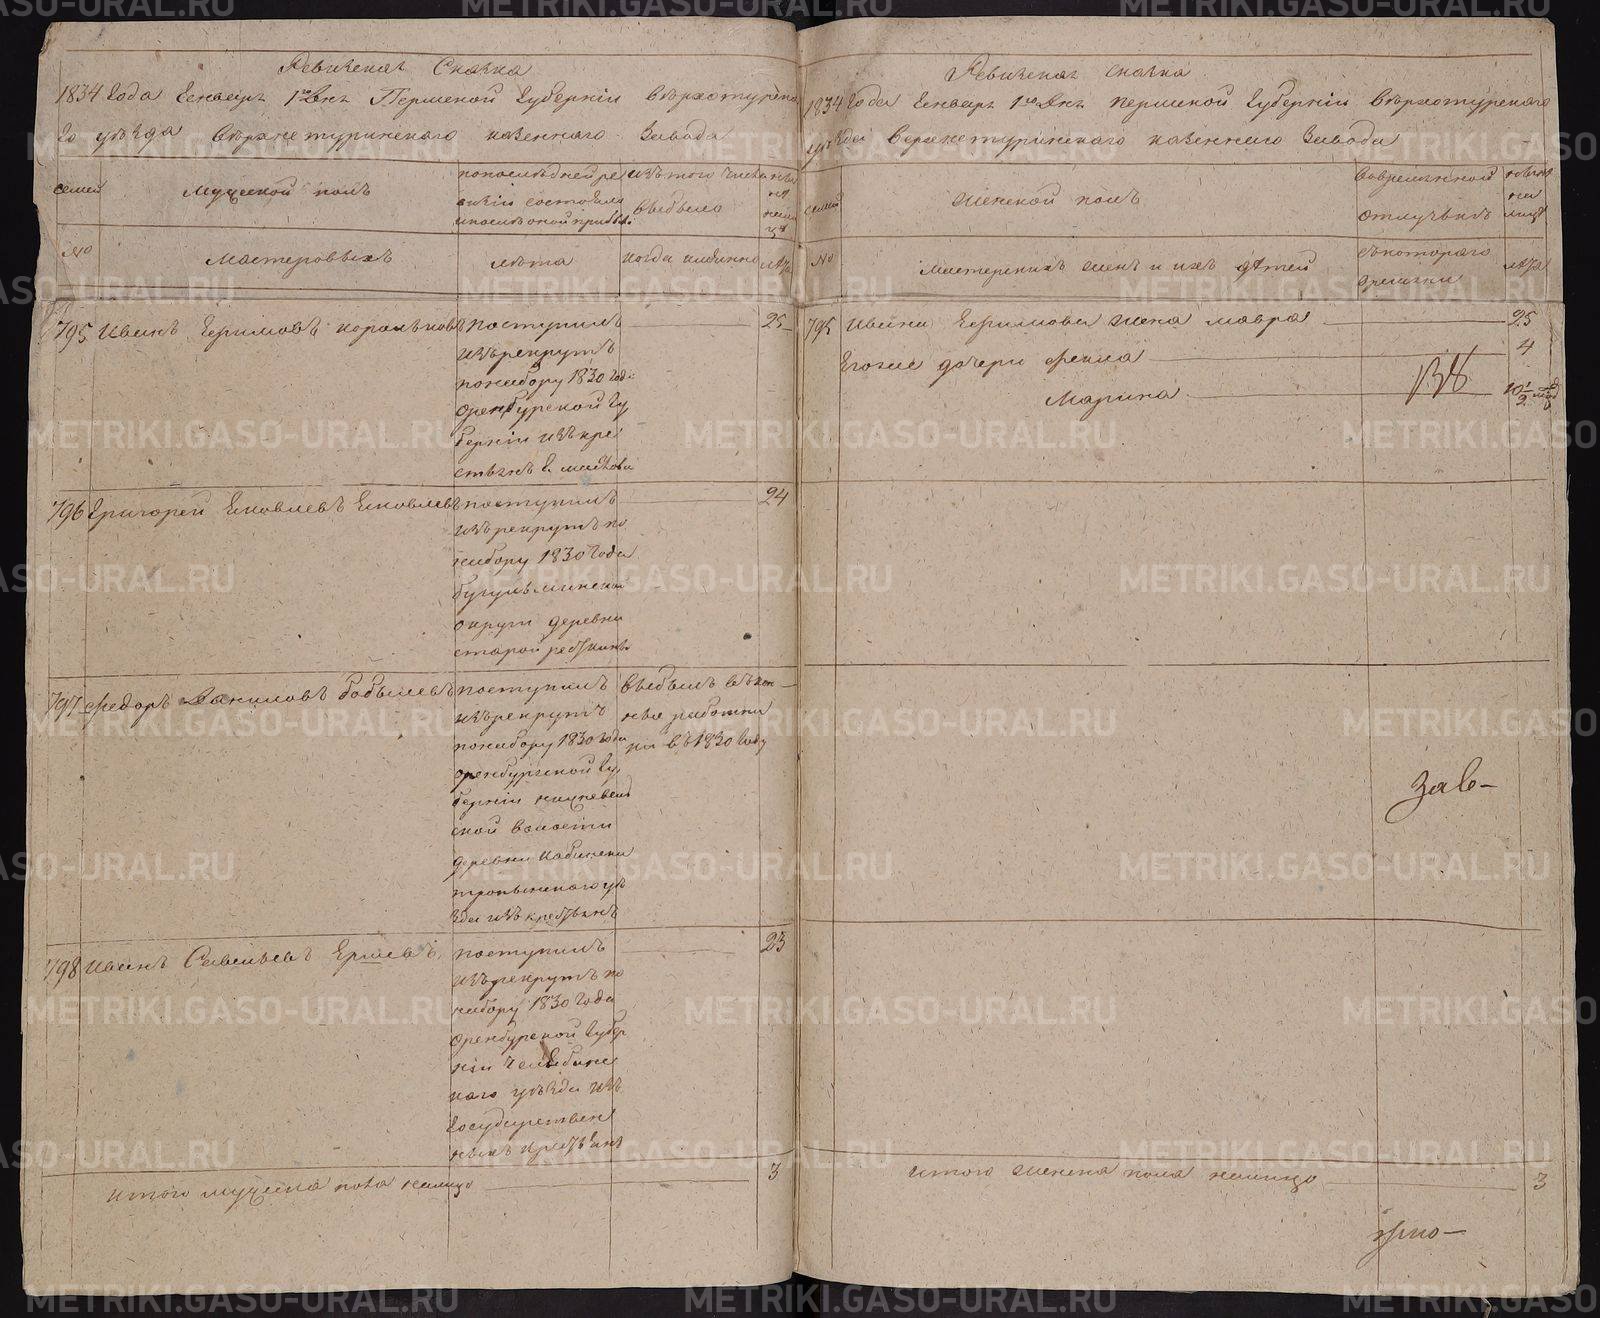 Ревизская Сказка
1834 Года Генваря 1го дня Пермской Губернии Верхотурска
го уезда Верхнетуринского казенного Завода
семей
Мужеской полъ
попоследней ре
визии состояло
ипоследней прибы.
изъ того числа
выбыло
ны
не
№
Мастеровыхъ
лета
когда имянно
лета
795 Иванъ Ефимовъ Корольковъ
поступилъ
изърекрутъ
понабору 1830 году
Оренбурской гу
бернии изъкре
стьянъ
25
796 Григорей Яковлевъ Яковлевъ
поступилъ
изърекрутъ по
набору 1830 Года
бугульминской
округи деревни
старой
24
797 Федоръ Даниловъ Бобылевъ
поступилъ
изърекрутъ
понабору 1830 года
оренбургской гу
бернии
ской волости
деревни
троицкаго уе
зда изъ крестьянъ
выбылъ въ кон
ные работни
ки въ 1830 году
798 Иванъ Савельевъ Ершевъ
поступилъ
изърекрутъ по
набору 1830 Года
Оренбурской Губер
нии Челябинс
каго уезда изъ
Государствен
ныхъ крестьянъ
23
итого мужеска пола налицо 3
Ревизская Сказка
1834 Года Генваря 1го дня Пермской Губернии Верхотурского
уезда Верхнетуринского казенного Завода
семей
Женской полъ
вовременной
отлучьке
ныне
на
лице
№
Мастерскихъ женъ и ихъ детей
съкотораго
времени
лета
795 Ивана Ефимова жена Мавра 25
Егоже дочери Фекла 4
Марина 10 1/2
138
Зав-
итого женска пола налицо 3